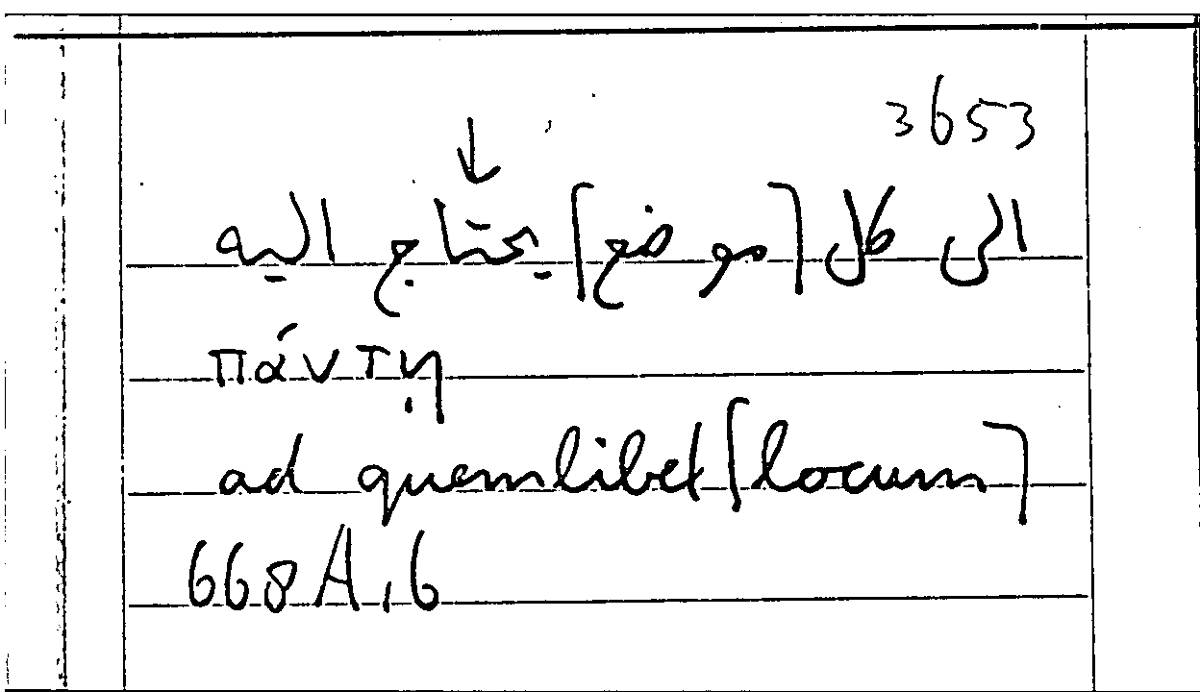 3653
الى كل [موضع] يحتاج اليه
πάντῃ
ad quemlibet [locum]
668A,6